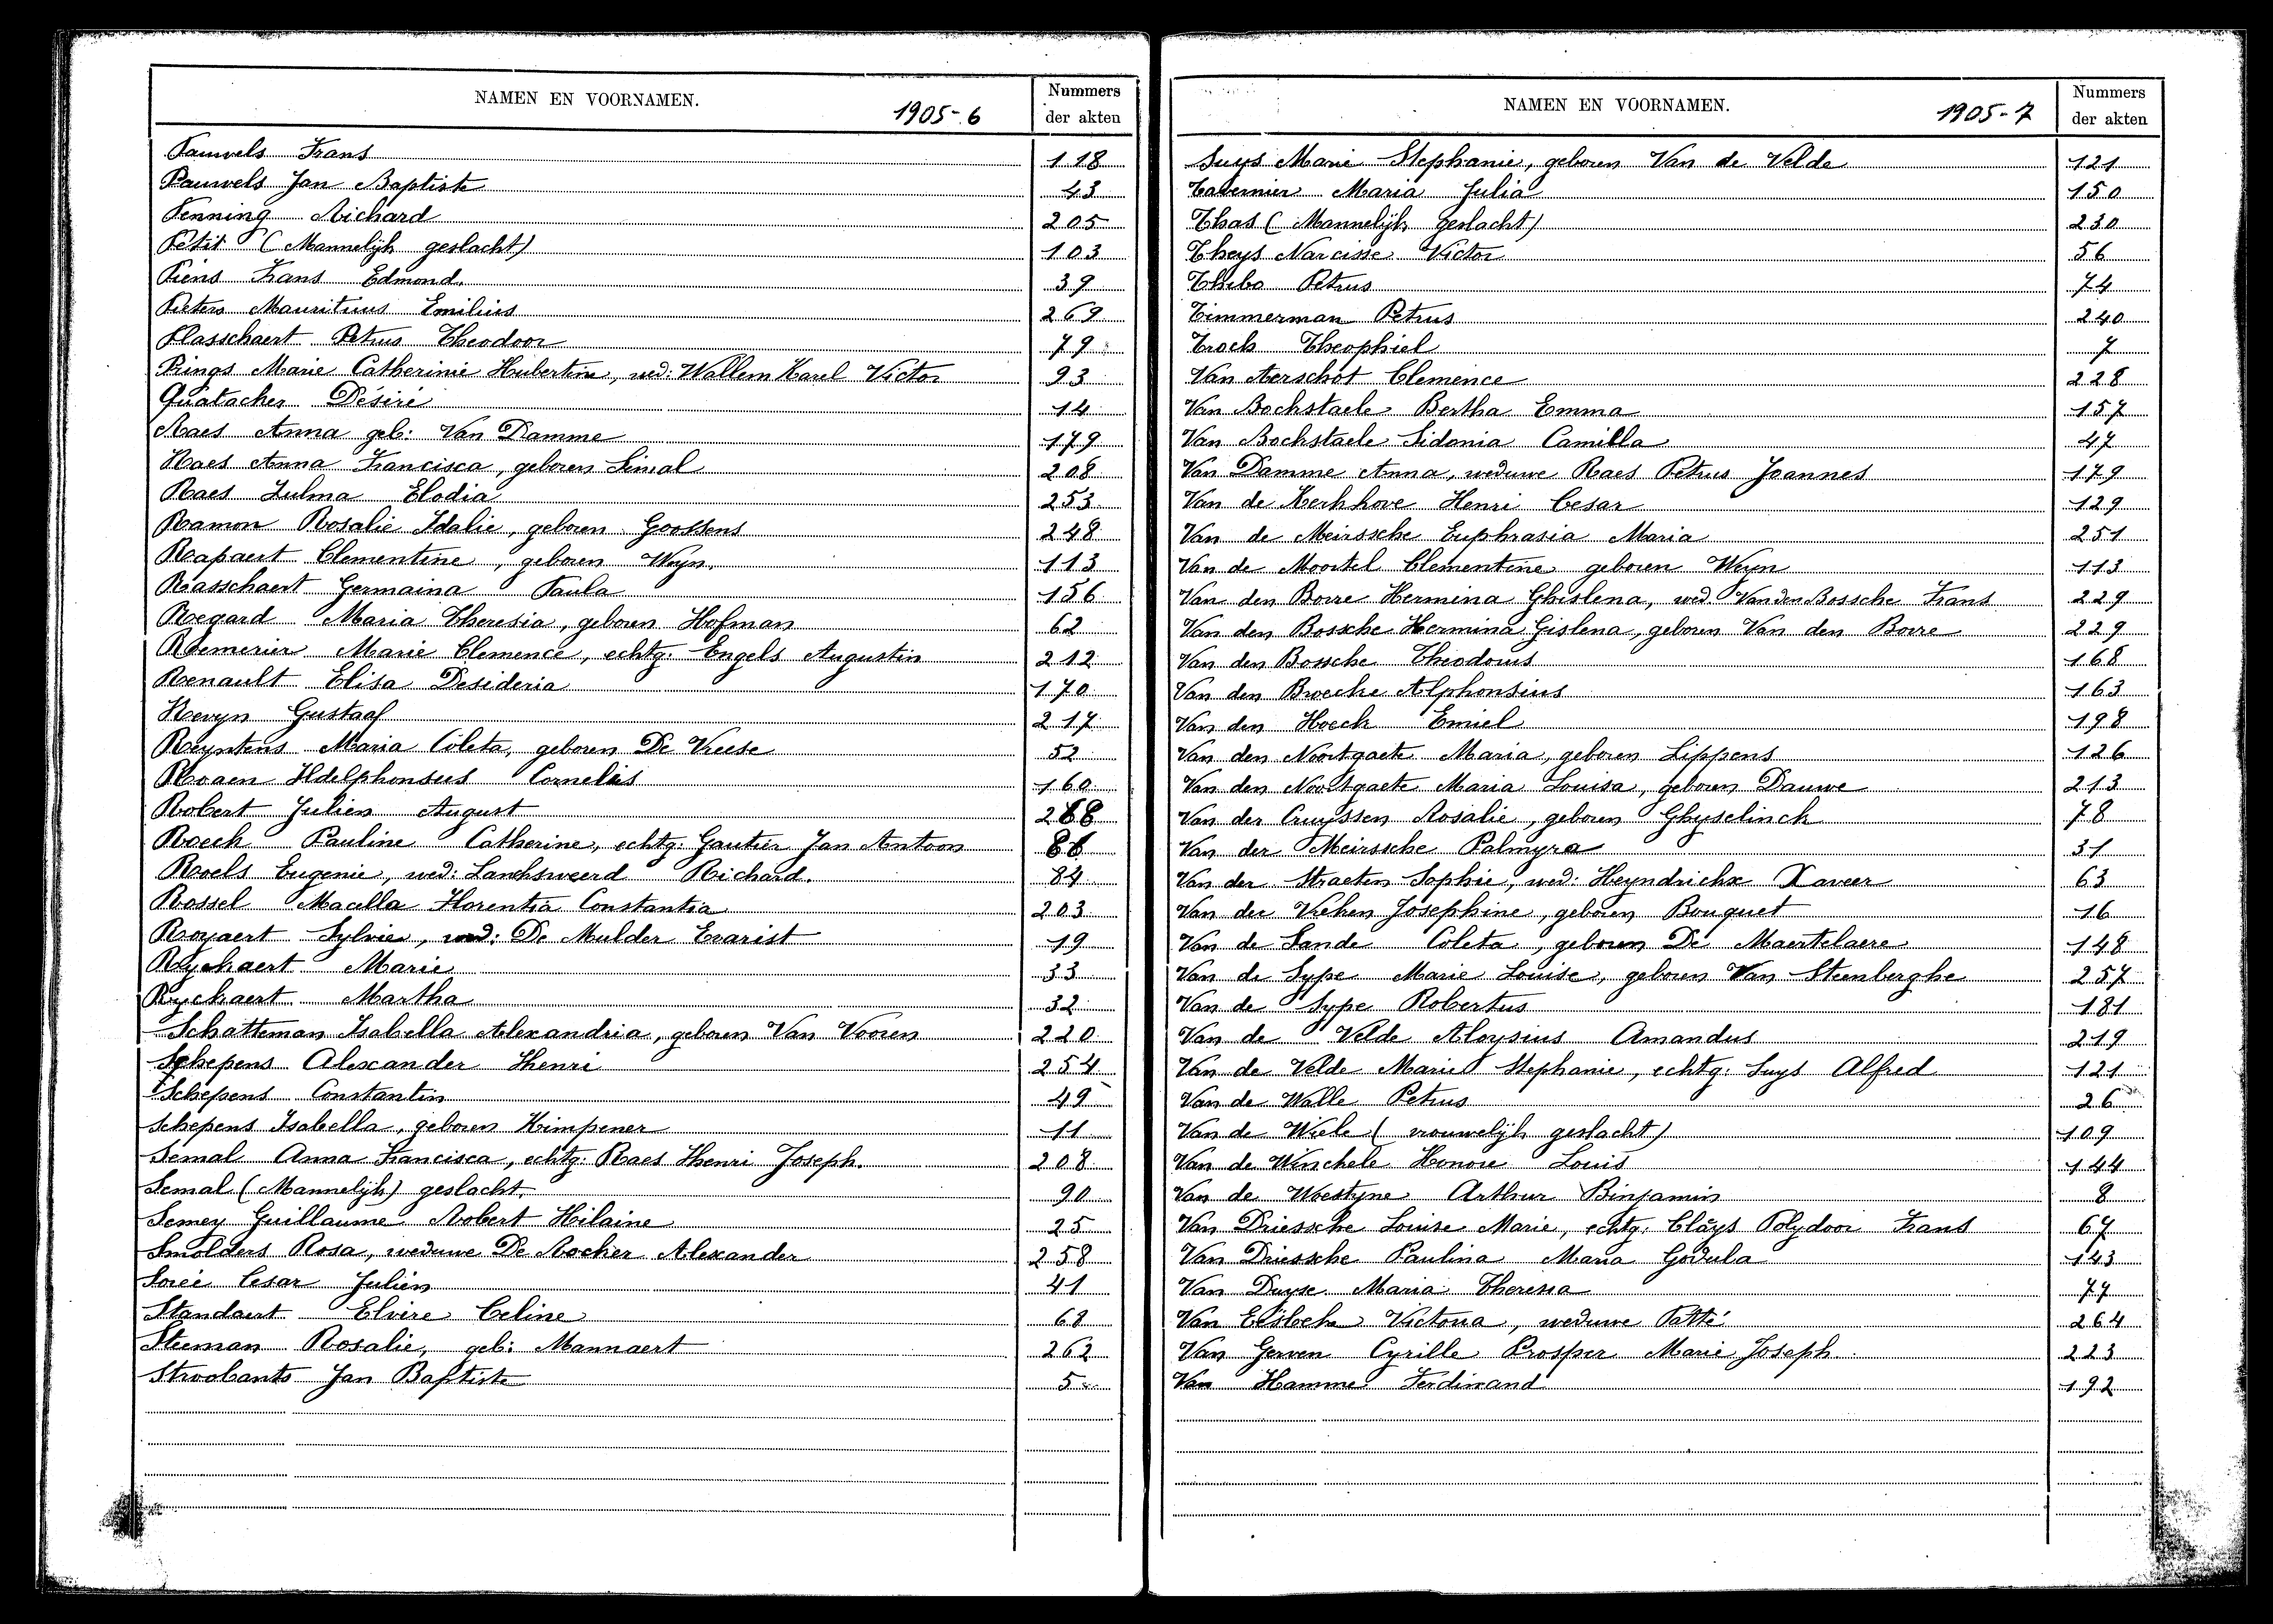 NAMEN EN VOORNAMEN. 1905-6 Nummers der akten
Pauwels Frans 118
Pauwels Jan Baptiste 43
Penning Richard 205
Petit (Mannelijk geslacht) 103
Piens Frans Edmond. 39
Pieters Mauritius Emilius 269
Plasschaert Petrus Theodoor 79
Prings Marie Catherinie Hubertine, wed: Wallem Karel Victor 93
Quatacker Désiré 14
Raes Anna geb: Van Damme 179
Raes Anna Francisca, geboren Semal 208
Raes Zulma Elodia 253
Ramon Rosalie Idalie, geboren Goossens 248
Rapaert Clementine, geboren Weyn. 113
Rasschaert Germaina Paula 156
Regard Maria Theresia, geboren Hofman 62
Remerier Marie Clemence, echtg: Engels Augustin 212
Renault Elisa Desideria 170
Revyn Gustaaf 217
Reyntens Maria Coleta, geboren De Vreese 52
Roaen Ildelphonsus Cornelis 160
Robert Julien August 268
Roeck Pauline Catherine, echtg: Gautier Jan Antoon 86
Roels Eugenie, wed: Lanckswеerd Richard. 84
Rossel Macella Florentia Constantia 203
Royaert Sylvie, wed: De Mulder Evarist 19
Ryckaert Marie 33
Ryckaert Martha 32
Schatteman Isabella Alexandria, geboren Van Vooren 220
Schepens Alexander Henri 254
Schepens Constantin 49
Schepens Isabella, geboren Kimpener 11
Semal Anna Francisca, echtg: Raes Henri Joseph. 208
Semal (Mannelijk) geslacht. 90
Semey Guillaume Robert Hilaine 25
Smolders Rosa, weduwe De Rocker Alexander 258
Soreé Cesar Julien 41
Standaert Elvire Celine 68
Steeman Rosalie, geb: Mannaert 262
Stroobants Jan Baptiste 5
NAMEN EN VOORNAMEN. 1905-7 Nummers der akten
Suys Marie Stephanie, geboren Van de Velde 121
Tavernier Maria Julia 150
Thas (Mannelijk geslacht) 230
Theys Narcisse Victor 56
Thibo Petrus 74
Timmerman Petrus 240
Trock Theophiel 7
Van Aerschot Clemence 228
Van Bockstaele Bertha Emma 157
Van Bockstaele Sidonia Camilla 47
Van Damme Anna, weduwe Raes Petrus Joannes 179
Van de Kerkhove Henri Cesar 129
Van de Meirssche Euphrasia Maria 251
Van de Moortel Clementine geboren Weyn 113
Van den Borre Hermina Ghislena, wed. Van den Bossche Frans 229
Van den Bossche Hermina Gislena, geboren Van den Borre 229
Van den Bossche Theodorus 168
Van den Broecke Alphonsius 163
Van den Hoeck Emiel 198
Van den Noortgaete Maria, geboren Lippens 126
Van den Noortgaete Maria Louisa, geboren Dauwe 213
Van der Cruyssen Rosalie, geboren Ghyselinck 78
Van der Meirssche Palmyra 31
Van der Straeten Sophie, wed: Heyndrickx Xaveer 63
Van der Vieken Josephine, geboren Bouquet 16
Van de Sande Coleta, geboren De Maertelaere 148
Van de Sype Marie Louise, geboren Van Steenberghe 257
Van de Sype Robertus 181
Van de Velde Aloysius Amandus 219
Van de Velde Marie Stephanie, echtg: Suys Alfred 121
Van de Walle Petrus 26
Van de Wiele (vrouwelijk geslacht) 109
Van de Winckele Honore Louis 144
Van de Woestyne Arthur Binjamin 8
Van Driessche Louise Marie, echtg: Claÿs Polydoor Frans 67
Van Driessche Paulina Maria Godula 143
Van Duyse Maria Theresia 77
Van Eesbeke Victoria, weduwe Patté 264
Van Gerven Cyrille Prosper Marie Joseph 223
Van Hamme Ferdinand 192